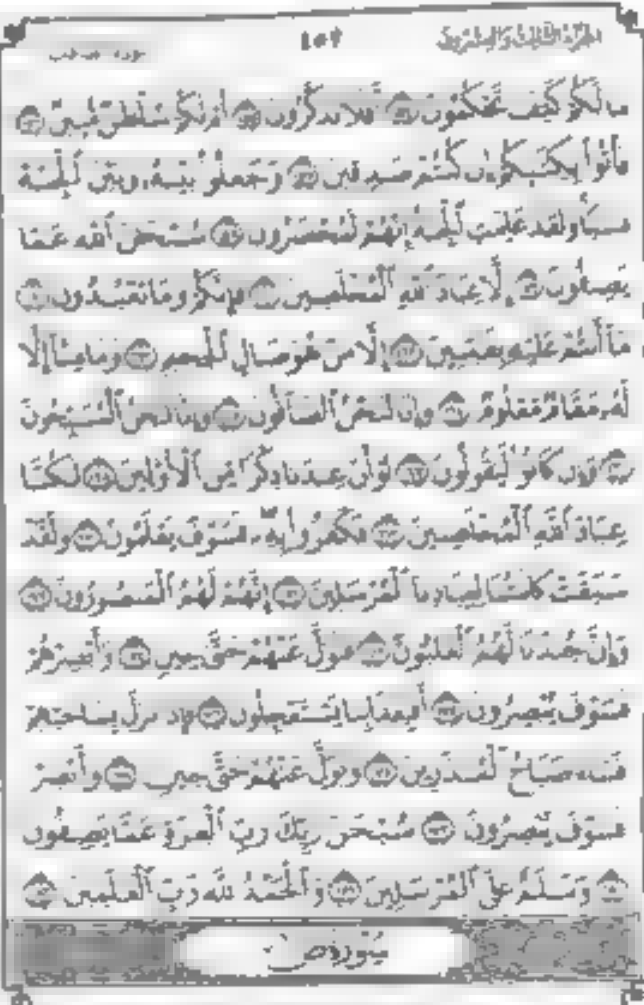 الجزء الثالث والعشرون ٤٥٢ سورة
مَا لَكُمْ كَيْفَ تَحْكُمُونَ ١٥٤ أَفَلَا تَذَكَّرُونَ ١٥٥ أَمْ لَكُمْ سُلْطَٰنٌ مُّبِينٌ ١٥٦
فَأْتُوا۟ بِكِتَٰبِكُمْ إِن كُنتُمْ صَٰدِقِينَ ١٥٧ وَجَعَلُوا۟ بَيْنَهُۥ وَبَيْنَ ٱلْجِنَّةِ
نَسَبًا وَلَقَدْ عَلِمَتِ ٱلْجِنَّةُ إِنَّهُمْ لَمُحْضَرُونَ ١٥٨ سُبْحَٰنَ ٱللَّهِ عَمَّا
يَصِفُونَ ١٥٩ إِلَّا عِبَادَ ٱللَّهِ ٱلْمُخْلَصِينَ ١٦٠ فَإِنَّكُمْ وَمَا تَعْبُدُونَ ١٦١
مَآ أَنتُمْ عَلَيْهِ بِفَٰتِنِينَ ١٦٢ إِلَّا مَنْ هُوَ صَالِ ٱلْجَحِيمِ ١٦٣ وَمَا مِنَّآ إِلَّا
لَهُۥ مَقَامٌ مَّعْلُومٌ ١٦٤ وَإِنَّا لَنَحْنُ ٱلصَّآفُّونَ ١٦٥ وَإِنَّا لَنَحْنُ ٱلْمُسَبِّحُونَ
١٦٦ وَإِن كَانُوا۟ لَيَقُولُونَ ١٦٧ لَوْ أَنَّ عِندَنَا ذِكْرًا مِّنَ ٱلْأَوَّلِينَ ١٦٨ لَكُنَّا
عِبَادَ ٱللَّهِ ٱلْمُخْلَصِينَ ١٦٩ فَكَفَرُوا۟ بِهِۦ فَسَوْفَ يَعْلَمُونَ ١٧٠ وَلَقَدْ
سَبَقَتْ كَلِمَتُنَا لِعِبَادِنَا ٱلْمُرْسَلِينَ ١٧١ إِنَّهُمْ لَهُمُ ٱلْمَنصُورُونَ ١٧٢
وَإِنَّ جُندَنَا لَهُمُ ٱلْغَٰلِبُونَ ١٧٣ فَتَوَلَّ عَنْهُمْ حَتَّىٰ حِينٍ ١٧٤ وَأَبْصِرْهُمْ
فَسَوْفَ يُبْصِرُونَ ١٧٥ أَفَبِعَذَابِنَا يَسْتَعْجِلُونَ ١٧٦ فَإِذَا نَزَلَ بِسَاحَتِهِمْ
فَسَآءَ صَبَاحُ ٱلْمُنذَرِينَ ١٧٧ وَتَوَلَّ عَنْهُمْ حَتَّىٰ حِينٍ ١٧٨ وَأَبْصِرْ
فَسَوْفَ يُبْصِرُونَ ١٧٩ سُبْحَٰنَ رَبِّكَ رَبِّ ٱلْعِزَّةِ عَمَّا يَصِفُونَ
١٨٠ وَسَلَٰمٌ عَلَى ٱلْمُرْسَلِينَ ١٨١ وَٱلْحَمْدُ لِلَّهِ رَبِّ ٱلْعَٰلَمِينَ ١٨٢
سُورَةُ ص